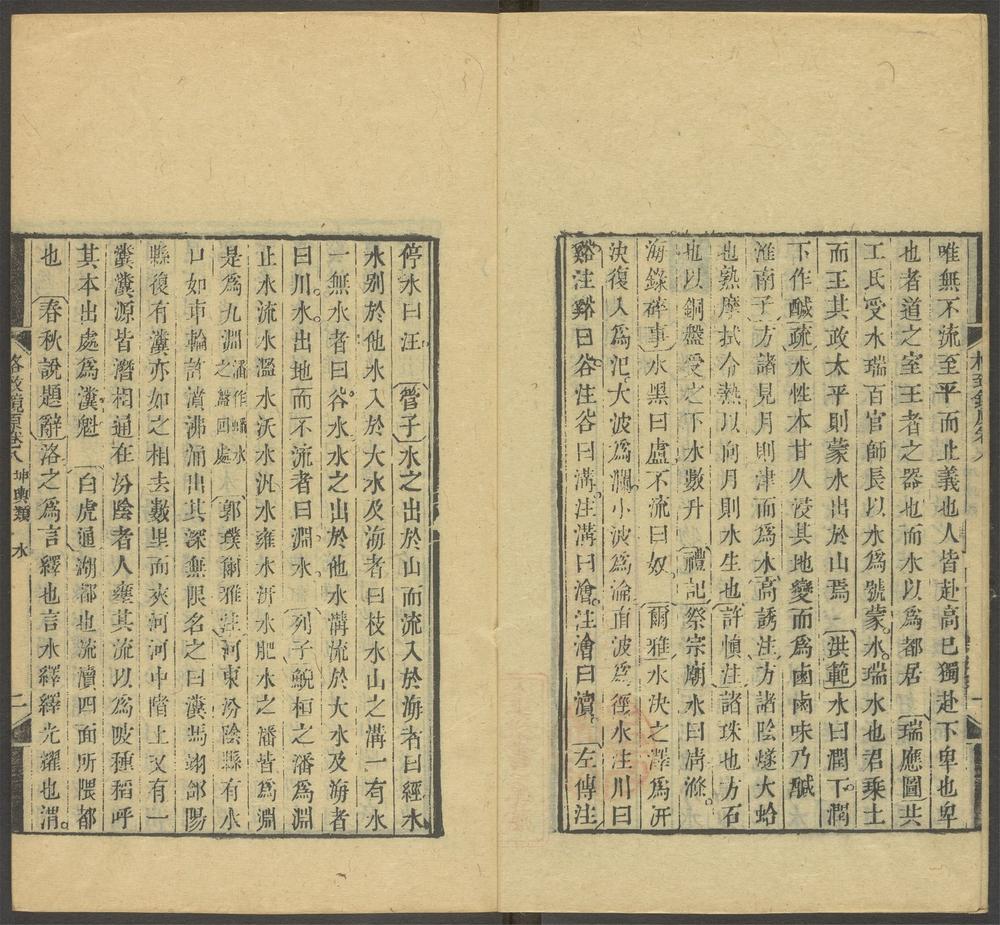 唯無不流至平而止義也人皆赴高己獨赴下卑也卑
也者道之室王者之器也而水以爲都居　瑞應圖共
工氏受水瑞百官師長以水爲號蒙水瑞水也君乗土
而王其政太平則蒙水出於山焉　洪範水曰潤下潤
下作醎疏水性本甘久浸其地變而爲鹵鹵味乃醎
淮南子方諸見月則津而爲水高誘注方諸陰燧大蛤
也熟摩拭令熱以向月則水生也許慎注諸珠也方石
也以銅盤受之下水數升　禮記祭宗廟水曰淸滌
海錄碎事水黑曰盧不流曰奴　爾雅水決之澤爲汧
決復入爲汜大波爲瀾小波爲淪直波爲徑水注川曰
谿注谿曰谷注谷曰溝注溝曰澮注澮曰瀆　左傳注
停水曰汪　管子水之出於山而流入於海者曰經水
水别於他水入於大水及海者曰枝水山之溝一有水
一無水者曰谷水水之出於他水溝流於大水及海者
曰川水出地而不流者曰淵水　列子鯢桓之潘爲淵
止水流水濫水沃水氿水雍水汧水肥水之潘皆爲淵
是爲九淵潘作蟠水之盤囘處　郭璞爾雅注河東汾陰縣有水
口如車輪許濆沸涌出其深無限名之曰瀵馮翊郃陽
縣復有瀵亦如之相去數里而夾河河中陼上又有一
瀵瀵源皆潛相通在汾陰者人壅其流以爲陂種稻呼
其本出處爲瀵魁　白虎通湖都也流瀆四面所隈都
也　春秋說題辭洛之爲言繹也言水繹繹光耀也渭
格致鏡原卷八　坤輿類　水　二